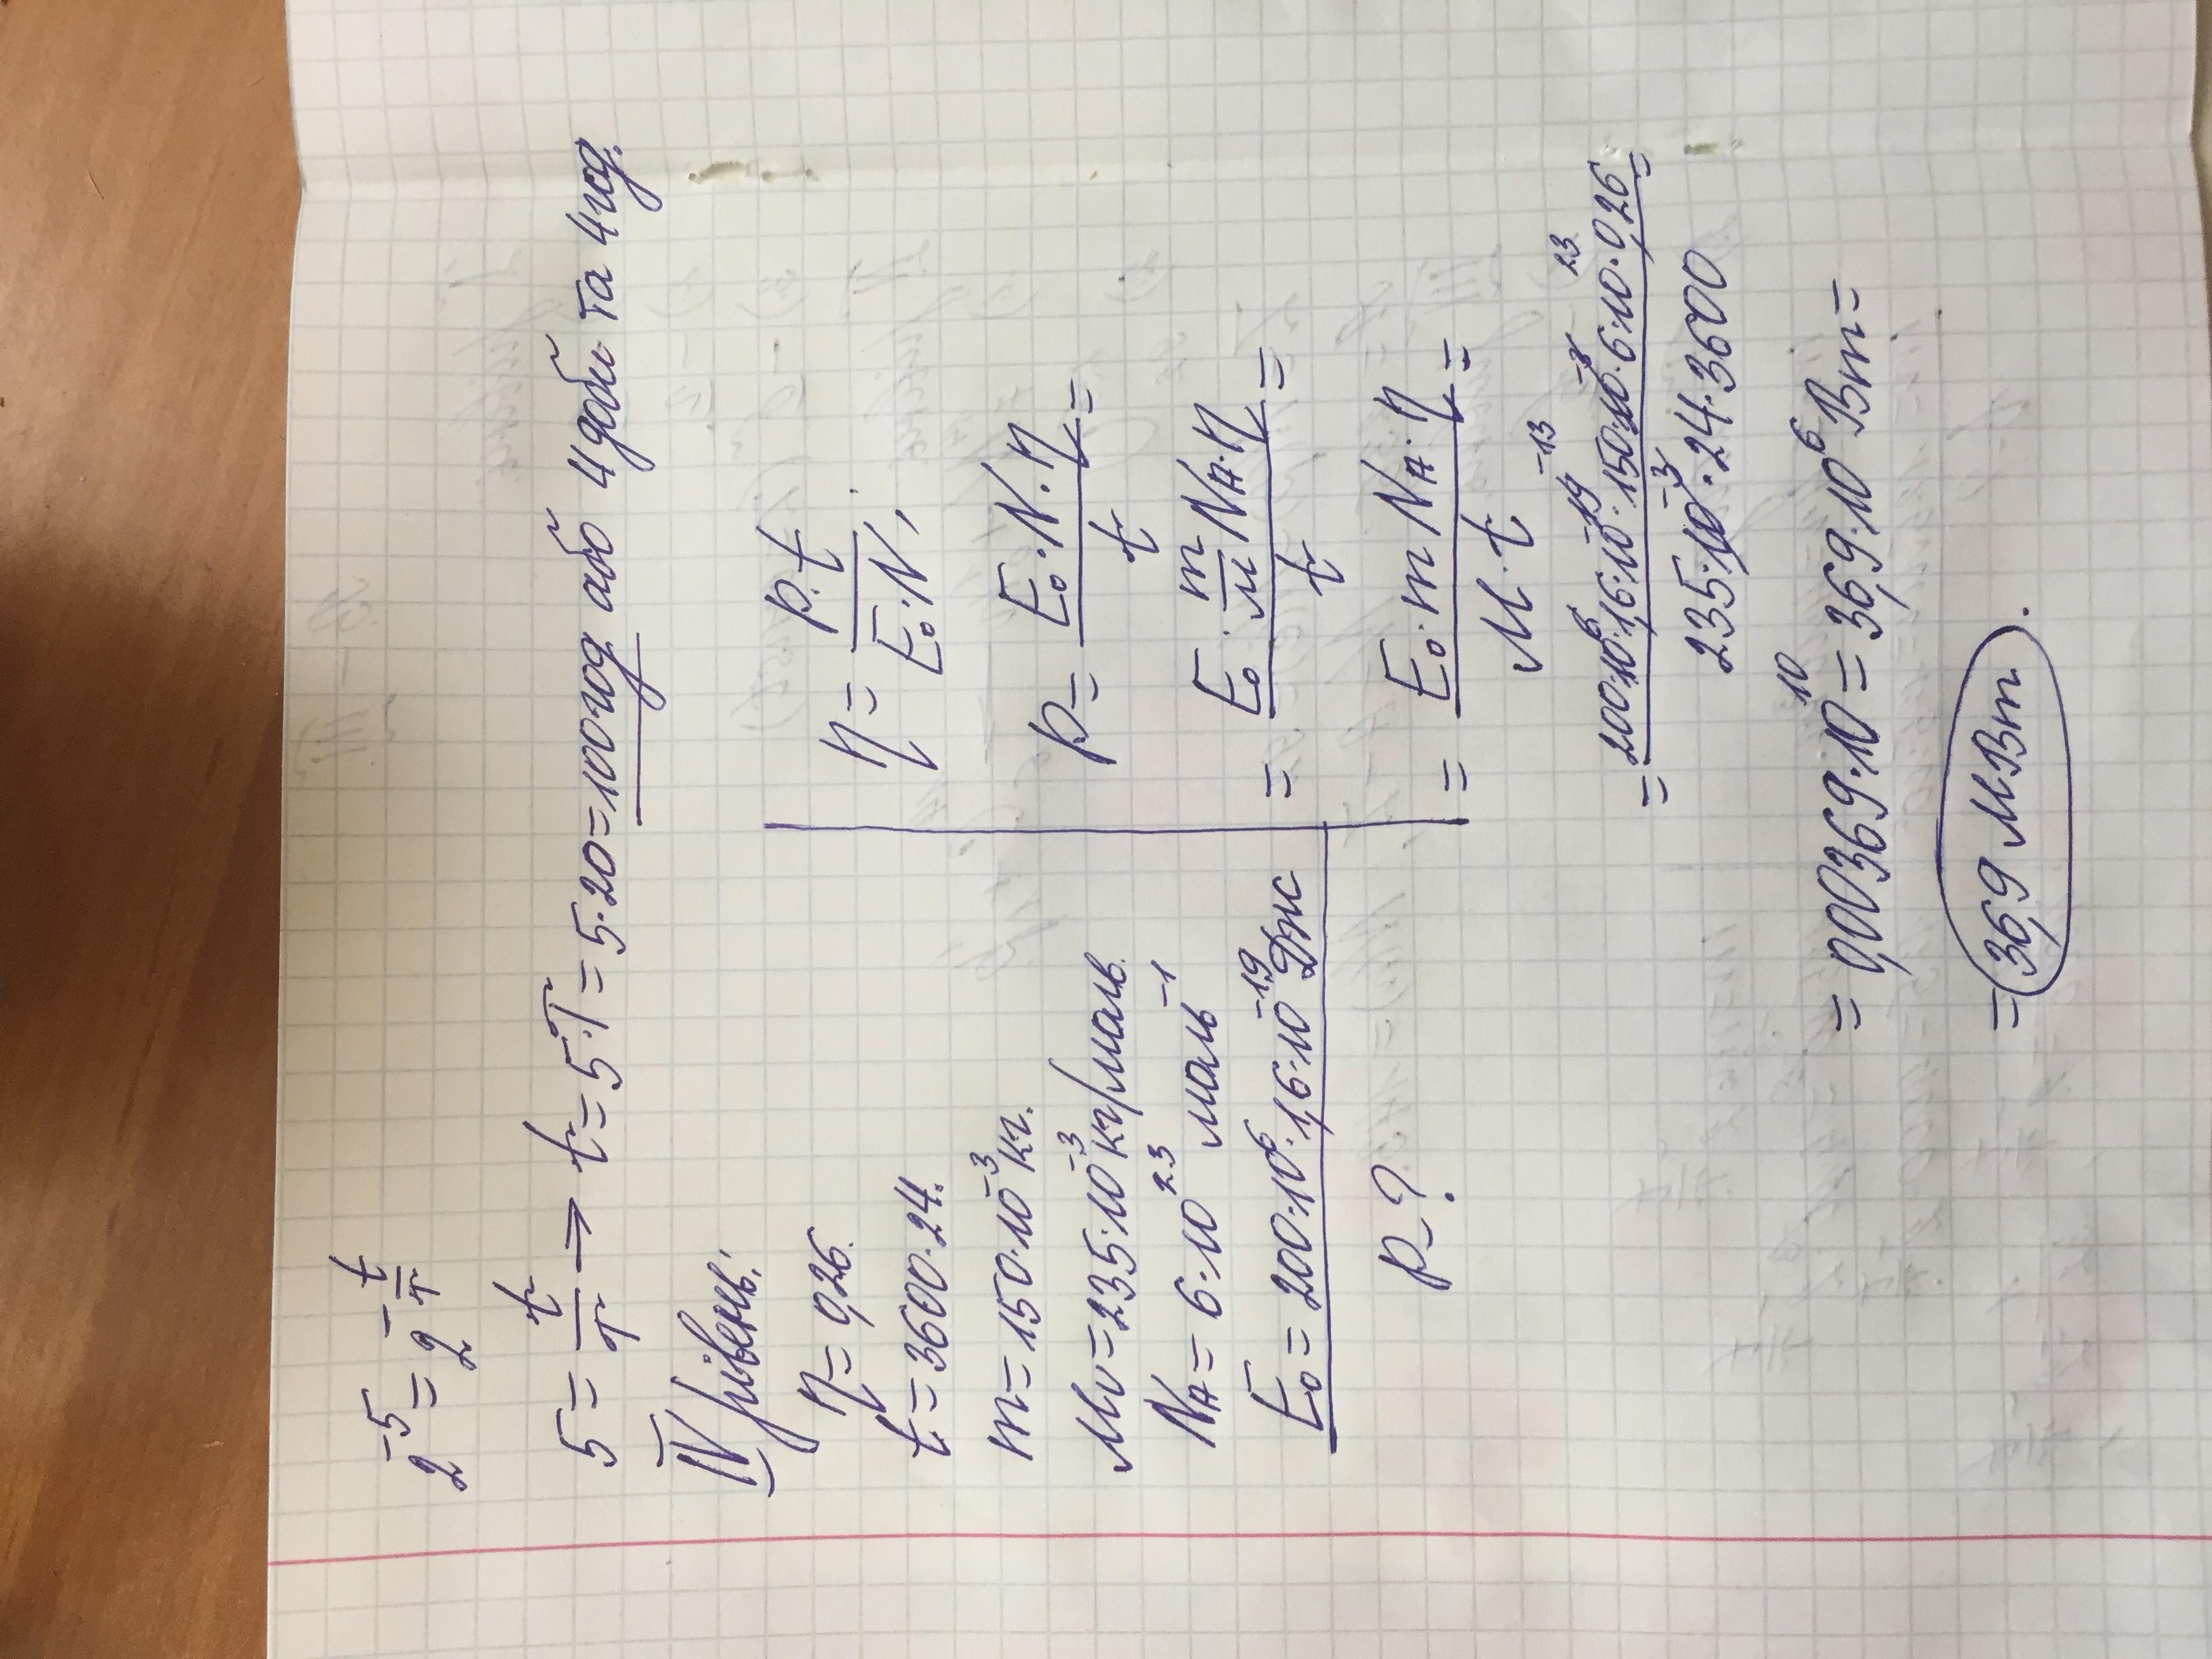 2^-5 = 2^-t/T
5 = t/T → t = 5·T = 5·20 = 100 год або 4 доби та 4 год.
IV рівень.
η = 0,26.
t = 3600·24.
m = 150·10^-3 кг.
Mν = 235·10^-3 кг/моль.
N_A = 6·10^23 моль^-1
E₀ = 200·10^6·1,6·10^-19 Дж
P - ?
η = P·t / E₀·N,
P = E₀·N·η / t =
= E₀·m/M N_A·η / t =
= E₀·m N_A·η / M·t =
= 200·10^6·1,6·10^-19 ^-13·150·10^-3·6·10^23·0,26 / 235·10^-3·24·3600 =
= 0,00369·10^10 = 36,9·10^6 Вт =
= 36,9 МВт.